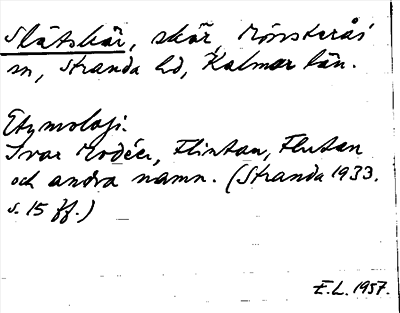 Slätskär, skär, Mönsterås
sn, Stranda hd, Kalmar län.
Etymologi:
Ivar Modéer, Flintan, Flutan
och andra namn. (Stranda 1933.
s. 15 ff.)
E.L. 1957.